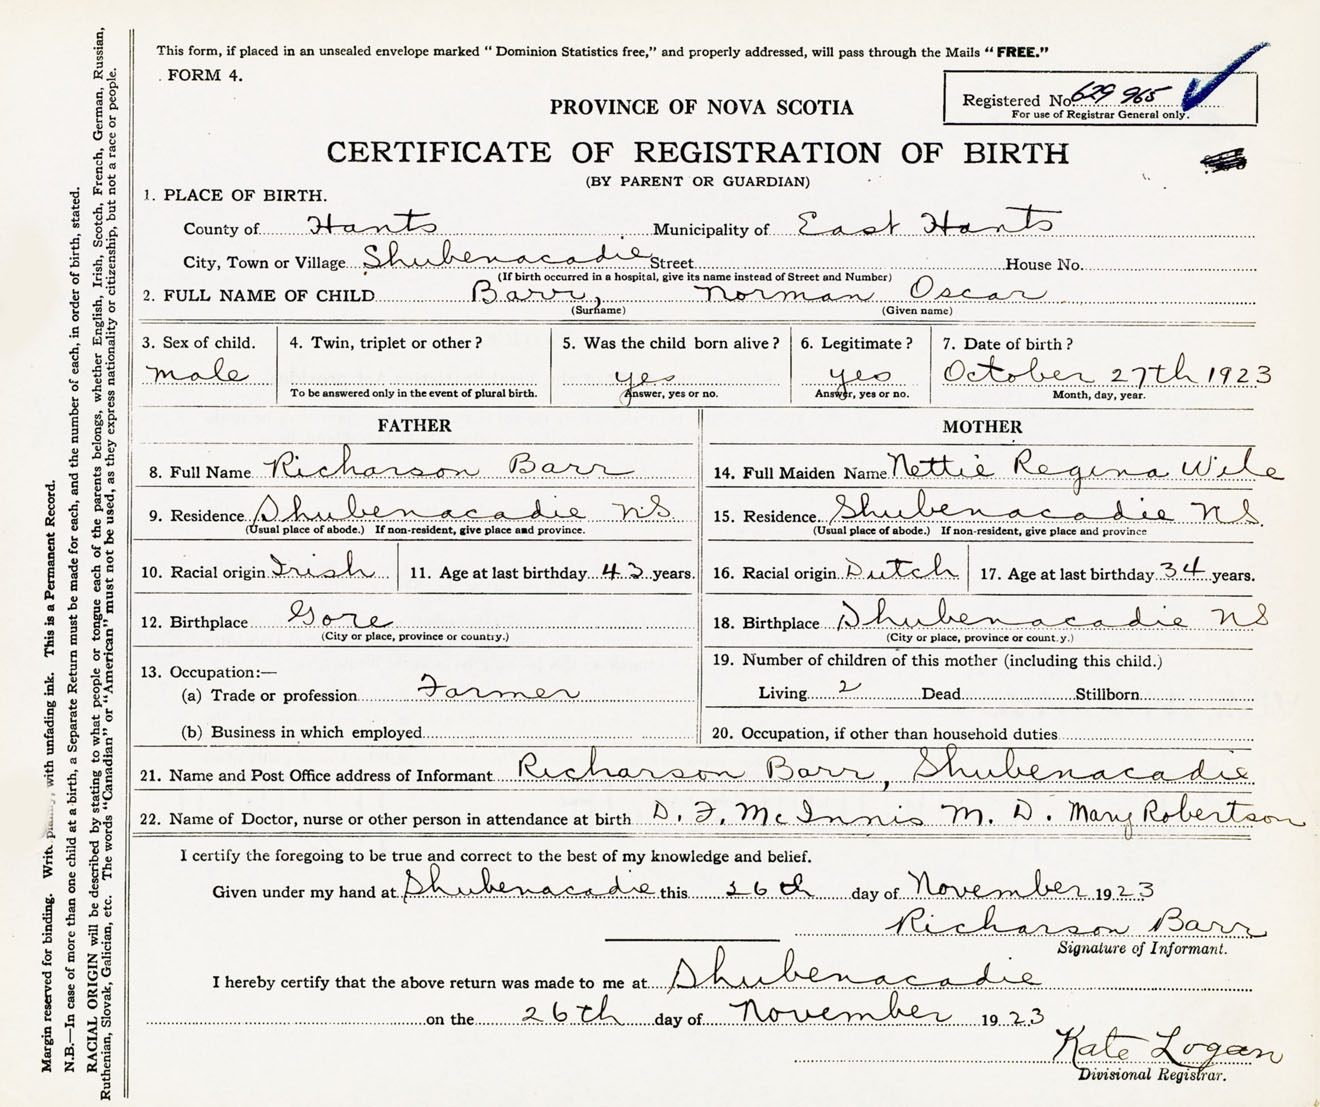 This form, if placed in an unsealed envelope marked "Dominion Statistics free," and properly addressed, will pass through the Mails "FREE."
FORM 4.
Registered No. 629 965
For use of Registrar General only.
PROVINCE OF NOVA SCOTIA
CERTIFICATE OF REGISTRATION OF BIRTH
(BY PARENT OR GUARDIAN)
1. PLACE OF BIRTH.
County of Hants Municipality of East Hants
City, Town or Village Shubenacadie Street House No.
(If birth occurred in a hospital, give its name instead of Street and Number)
2. FULL NAME OF CHILD Barr, Norman Oscar
(Surname) (Given name)
3. Sex of child. 4. Twin, triplet or other? 5. Was the child born alive? 6. Legitimate? 7. Date of birth?
male yes yes October 27th 1923
To be answered only in the event of plural birth. Answer, yes or no. Answer, yes or no. Month, day, year.
FATHER MOTHER
8. Full Name Richarson Barr 14. Full Maiden Name Nettie Regina Wile
9. Residence Shubenacadie NS 15. Residence Shubenacadie NS.
(Usual place of abode.) If non-resident, give place and province. (Usual place of abode.) If non-resident, give place and province
10. Racial origin Irish 11. Age at last birthday 43 years. 16. Racial origin Dutch 17. Age at last birthday 34 years.
12. Birthplace Gore 18. Birthplace Shubenacadie NS
(City or place, province or country.) (City or place, province or count.y.)
13. Occupation:— 19. Number of children of this mother (including this child.)
(a) Trade or profession Farmer Living 2 Dead Stillborn
(b) Business in which employed 20. Occupation, if other than household duties
21. Name and Post Office address of Informant Richarson Barr, Shubenacadie
22. Name of Doctor, nurse or other person in attendance at birth D. F. McInnis M. D. Mary Robertson
I certify the foregoing to be true and correct to the best of my knowledge and belief.
Given under my hand at Shubenacadie this 26th day of November 1923
Richarson Barr
Signature of Informant.
I hereby certify that the above return was made to me at Shubenacadie
on the 26th day of November 1923
Kate Logan
Divisional Registrar.
Margin reserved for binding. Write with unfading ink. This is a Permanent Record.
N.B.—In case of more than one child at a birth, a Separate Return must be made for each, and the number of each, in order of birth, stated.
RACIAL ORIGIN will be described by stating to what people or tongue each of the parents belongs, whether English, Irish, Scotch, French, German, Russian,
Ruthenian, Slovak, Galician, etc. The words "Canadian" or "American" must not be used, as they express nationality or citizenship, but not a race or people.